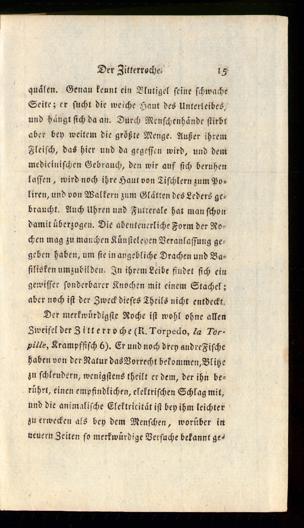 Der Zitterroche. 15
quälen. Genau kennt ein Blutigel seine schwache
Seite; er sucht die weiche Haut des Unterleibes,
und hängt sich da an. Durch Menschenhände stirbt
aber bey weitem die größte Menge. Außer ihrem
Fleisch, das hier und da gegessen wird, und dem
medicinischen Gebrauch, den wir auf sich beruhen
lassen, wird noch ihre Haut von Tischlern zum Po-
liren, und von Walkern zum Glätten des Leders ge-
braucht. Auch Uhren und Futterale hat man schon
damit überzogen. Die abenteuerliche Form der Ro-
chen mag zu manchen Künsteleyen Veranlassung ge-
geben haben, um sie in angebliche Drachen und Ba-
silisken umzubilden. In ihrem Leibe findet sich ein
gewisser sonderbarer Knochen mit einem Stachel;
aber noch ist der Zweck dieses Theils nicht entdeckt.
Der merkwürdigste Roche ist wohl ohne allen
Zweifel der Zitterroche (R. Torpedo, la Tor-
pille, Krampffisch 6). Er und noch drey andre Fische
haben von der Natur das Vorrecht bekommen, Blitze
zu schleudern, wenigstens theilt er dem, der ihn be-
rührt, einen empfindlichen, elektrischen Schlag mit,
und die animalische Elektricität ist bey ihm leichter
zu erwecken als bey dem Menschen, worüber in
neuern Zeiten so merkwürdige Versuche bekannt ge-